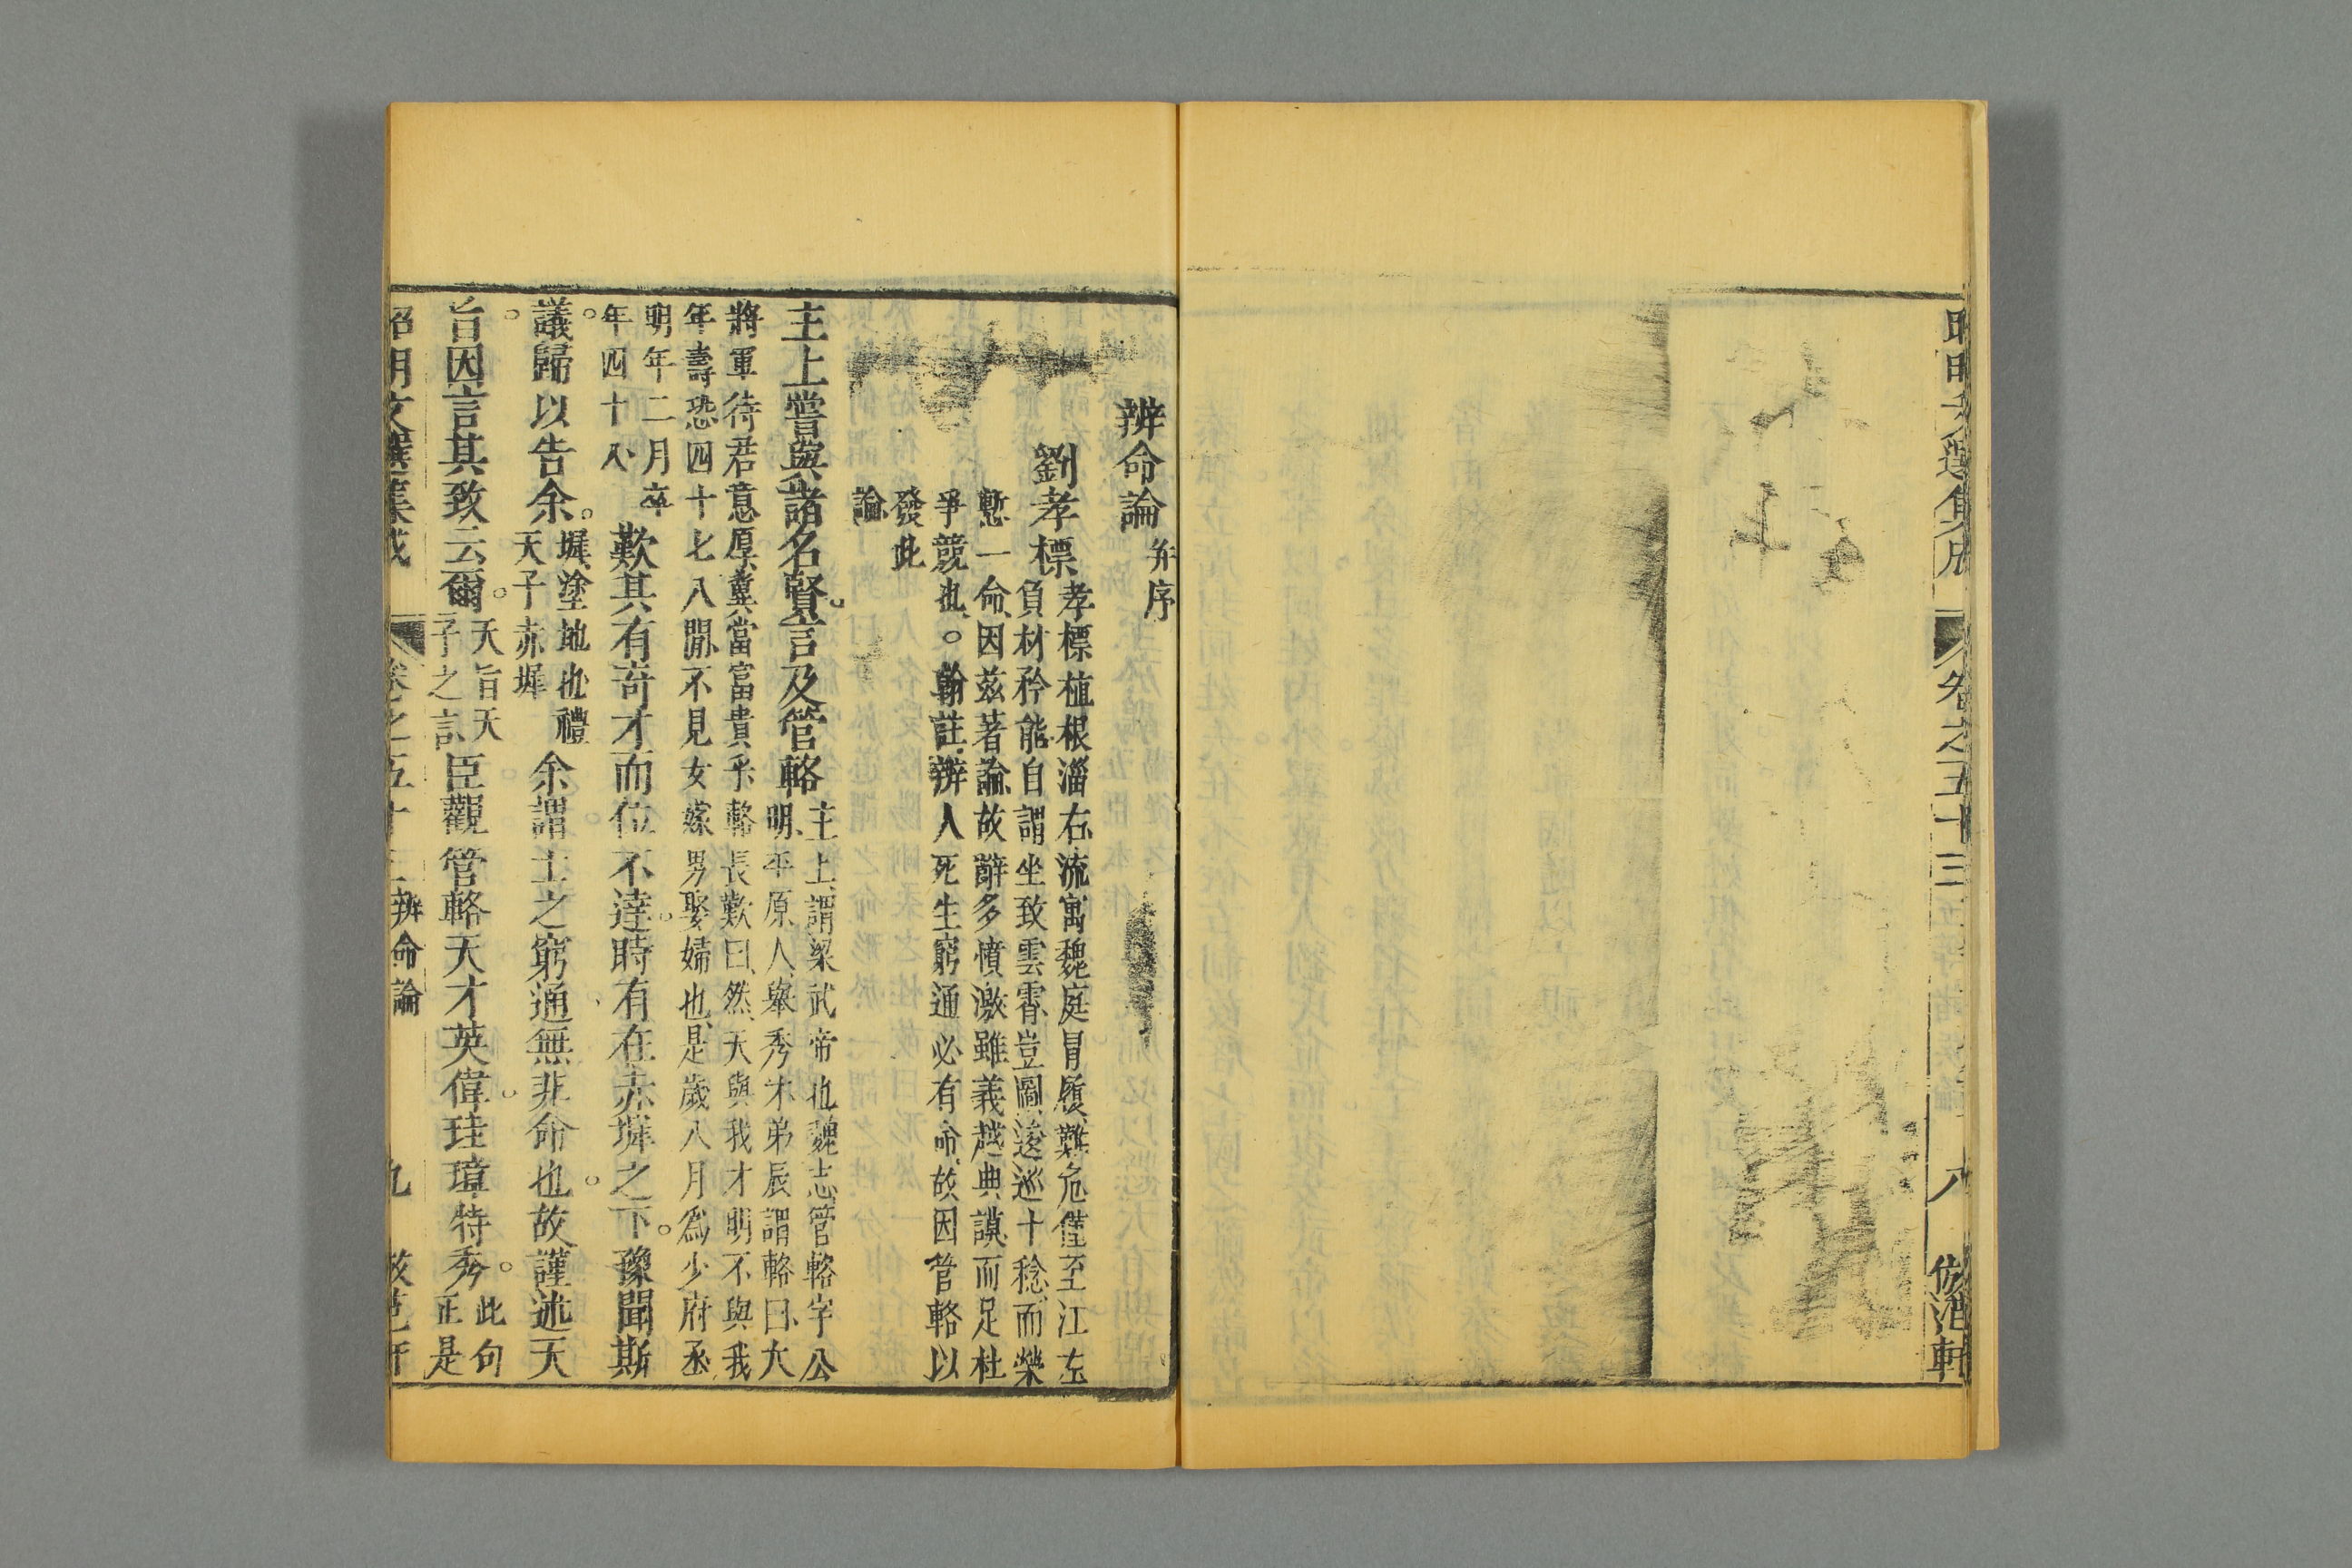 昭明文選集成 卷之五十三 八 倣范軒
辨命論 并序
劉孝標 孝標植根淄右流寓魏庭冒履難危僅至江左
負材矜能自謂坐致雲霄豈圖逡巡十稔而榮
慙一命因茲著論故辭多憤激雖義越典謨而足杜
爭競也。翰註辨人死生窮通必有命故因管輅以
發此
論
主上嘗與諸名賢言及管輅 主上謂梁武帝也魏志管輅字公
明平原人舉秀才弟辰謂輅曰大
將軍待君意厚冀當富貴乎輅長歎曰然天與我才明不與我
年壽恐四十七八間不見女嫁男娶婦也是歲八月爲少府丞
明年二月卒
年四十八 歎其有奇才而位不達。時有在赤墀之下。豫聞斯
議。歸以告余。 墀塗地也禮
天子赤墀 余謂士之窮通無非命也。故謹述天
旨因言其致云爾。 天旨天
子之言 臣觀管輅天才英偉。珪璋特秀。 此句
正是
昭明文選集成 卷之五十三 辨命論 九 倣范軒